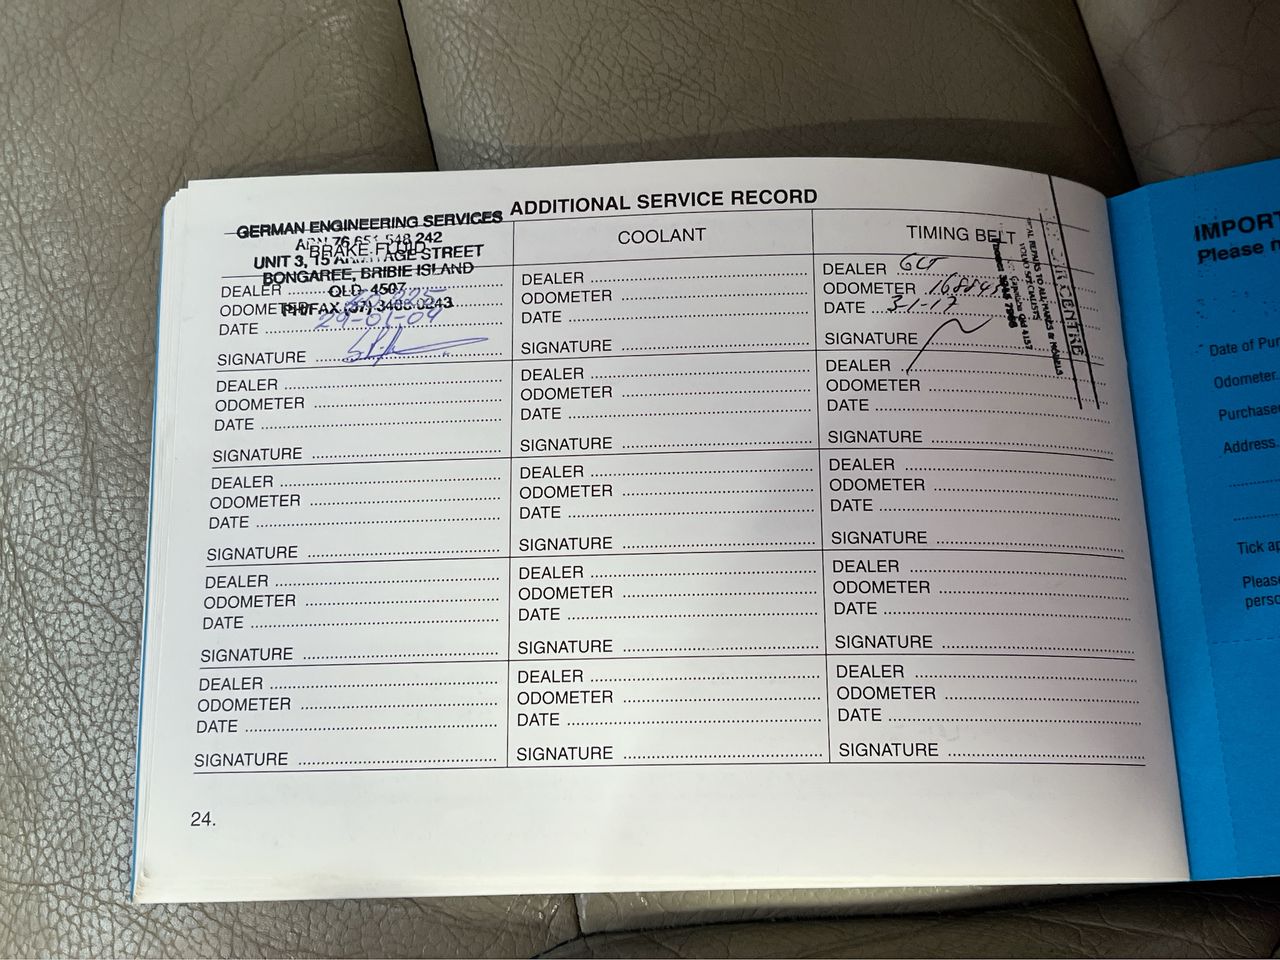 ADDITIONAL SERVICE RECORD
GERMAN ENGINEERING SERVICES
242
UNIT 3, 15 STREET
BONGAREE, BRIBIE ISLAND
QLD 4507
PH/FAX (07) 3408 0243
BRAKE FLUID
COOLANT
TIMING BELT
DEALER
ODOMETER
DATE 29-01-09
SIGNATURE
DEALER
ODOMETER
DATE
SIGNATURE
DEALER
ODOMETER
DATE 31-1-17
SIGNATURE
CENTRE
DEALER
ODOMETER
DATE
SIGNATURE
DEALER
ODOMETER
DATE
SIGNATURE
DEALER
ODOMETER
DATE
SIGNATURE
DEALER
ODOMETER
DATE
SIGNATURE
DEALER
ODOMETER
DATE
SIGNATURE
DEALER
ODOMETER
DATE
SIGNATURE
DEALER
ODOMETER
DATE
SIGNATURE
DEALER
ODOMETER
DATE
SIGNATURE
DEALER
ODOMETER
DATE
SIGNATURE
DEALER
ODOMETER
DATE
SIGNATURE
DEALER
ODOMETER
DATE
SIGNATURE
DEALER
ODOMETER
DATE
SIGNATURE
24.
Please
Date of
Odometer
Address
Tick